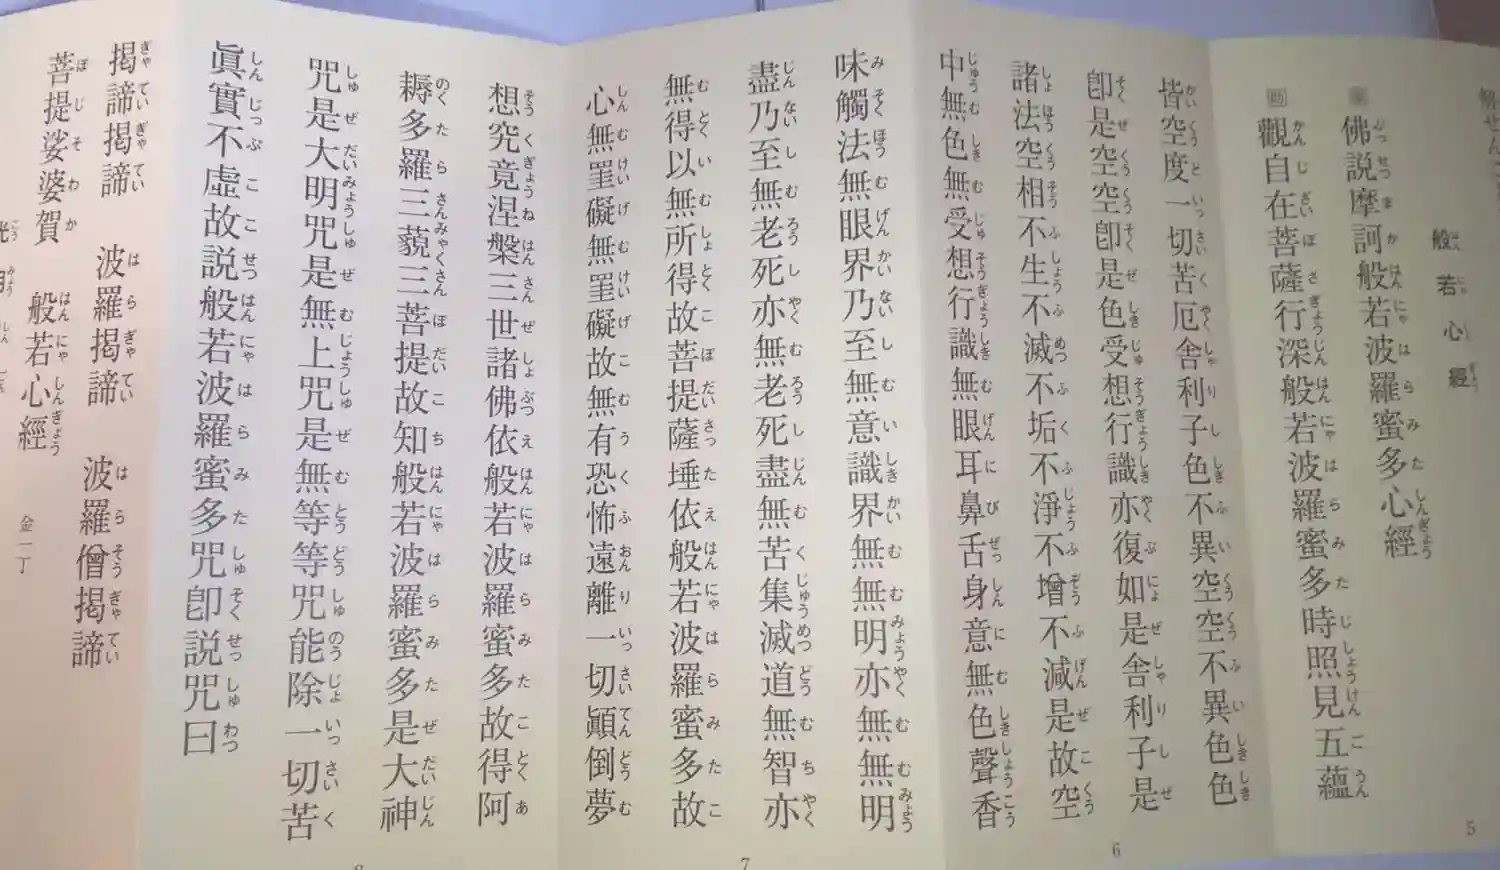 般若心經
佛説摩訶般若波羅蜜多心經
觀自在菩薩行深般若波羅蜜多時照見五蘊
皆空度一切苦厄舍利子色不異空空不異色色
卽是空空卽是色受想行識亦復如是舍利子是
諸法空相不生不滅不垢不淨不增不減是故空
中無色無受想行識無眼耳鼻舌身意無色聲香
味觸法無眼界乃至無意識界無無明亦無無明
盡乃至無老死亦無老死盡無苦集滅道無智亦
無得以無所得故菩提薩埵依般若波羅蜜多故
心無罣礙無罣礙故無有恐怖遠離一切顚倒夢
想究竟涅槃三世諸佛依般若波羅蜜多故得阿
耨多羅三藐三菩提故知般若波羅蜜多是大神
咒是大明咒是無上咒是無等等咒能除一切苦
眞實不虛故説般若波羅蜜多咒卽説咒曰
揭諦揭諦 波羅揭諦 波羅僧揭諦
菩提娑婆賀 般若心經 金一丁
5
6
7
8